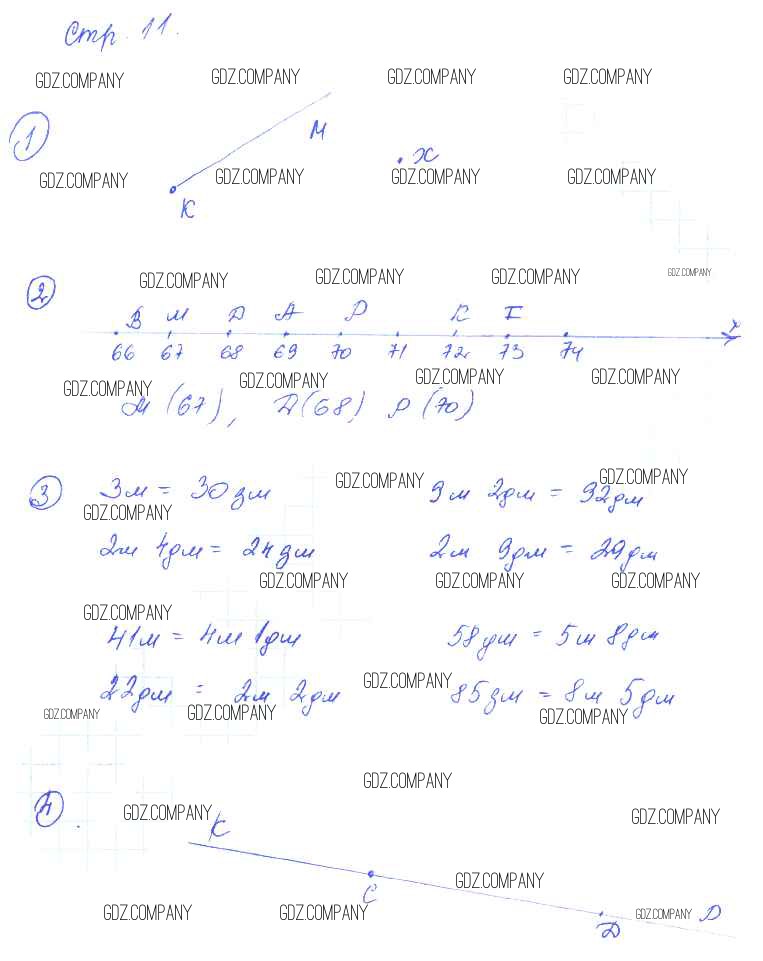 Стр. 11.
GDZ.COMPANY GDZ.COMPANY GDZ.COMPANY GDZ.COMPANY
1 М х
GDZ.COMPANY GDZ.COMPANY GDZ.COMPANY GDZ.COMPANY
К
GDZ.COMPANY GDZ.COMPANY GDZ.COMPANY GDZ.COMPANY
2
В М Д А Р Е х
66 67 68 69 70 71 72 73 74
GDZ.COMPANY GDZ.COMPANY GDZ.COMPANY GDZ.COMPANY
М (67), Д(68), Р (70)
GDZ.COMPANY GDZ.COMPANY
3 3м = 30дм 9м 2дм = 92дм
GDZ.COMPANY
2м 4дм = 24дм 2м 9дм = 29дм
GDZ.COMPANY GDZ.COMPANY GDZ.COMPANY
GDZ.COMPANY
41м = 4м 1дм 58дм = 5м 8дм
GDZ.COMPANY
22дм = 2м 2дм 85дм = 8м 5дм
GDZ.COMPANY GDZ.COMPANY GDZ.COMPANY
GDZ.COMPANY
4 GDZ.COMPANY GDZ.COMPANY
К
GDZ.COMPANY
С
GDZ.COMPANY GDZ.COMPANY GDZ.COMPANY D
Д